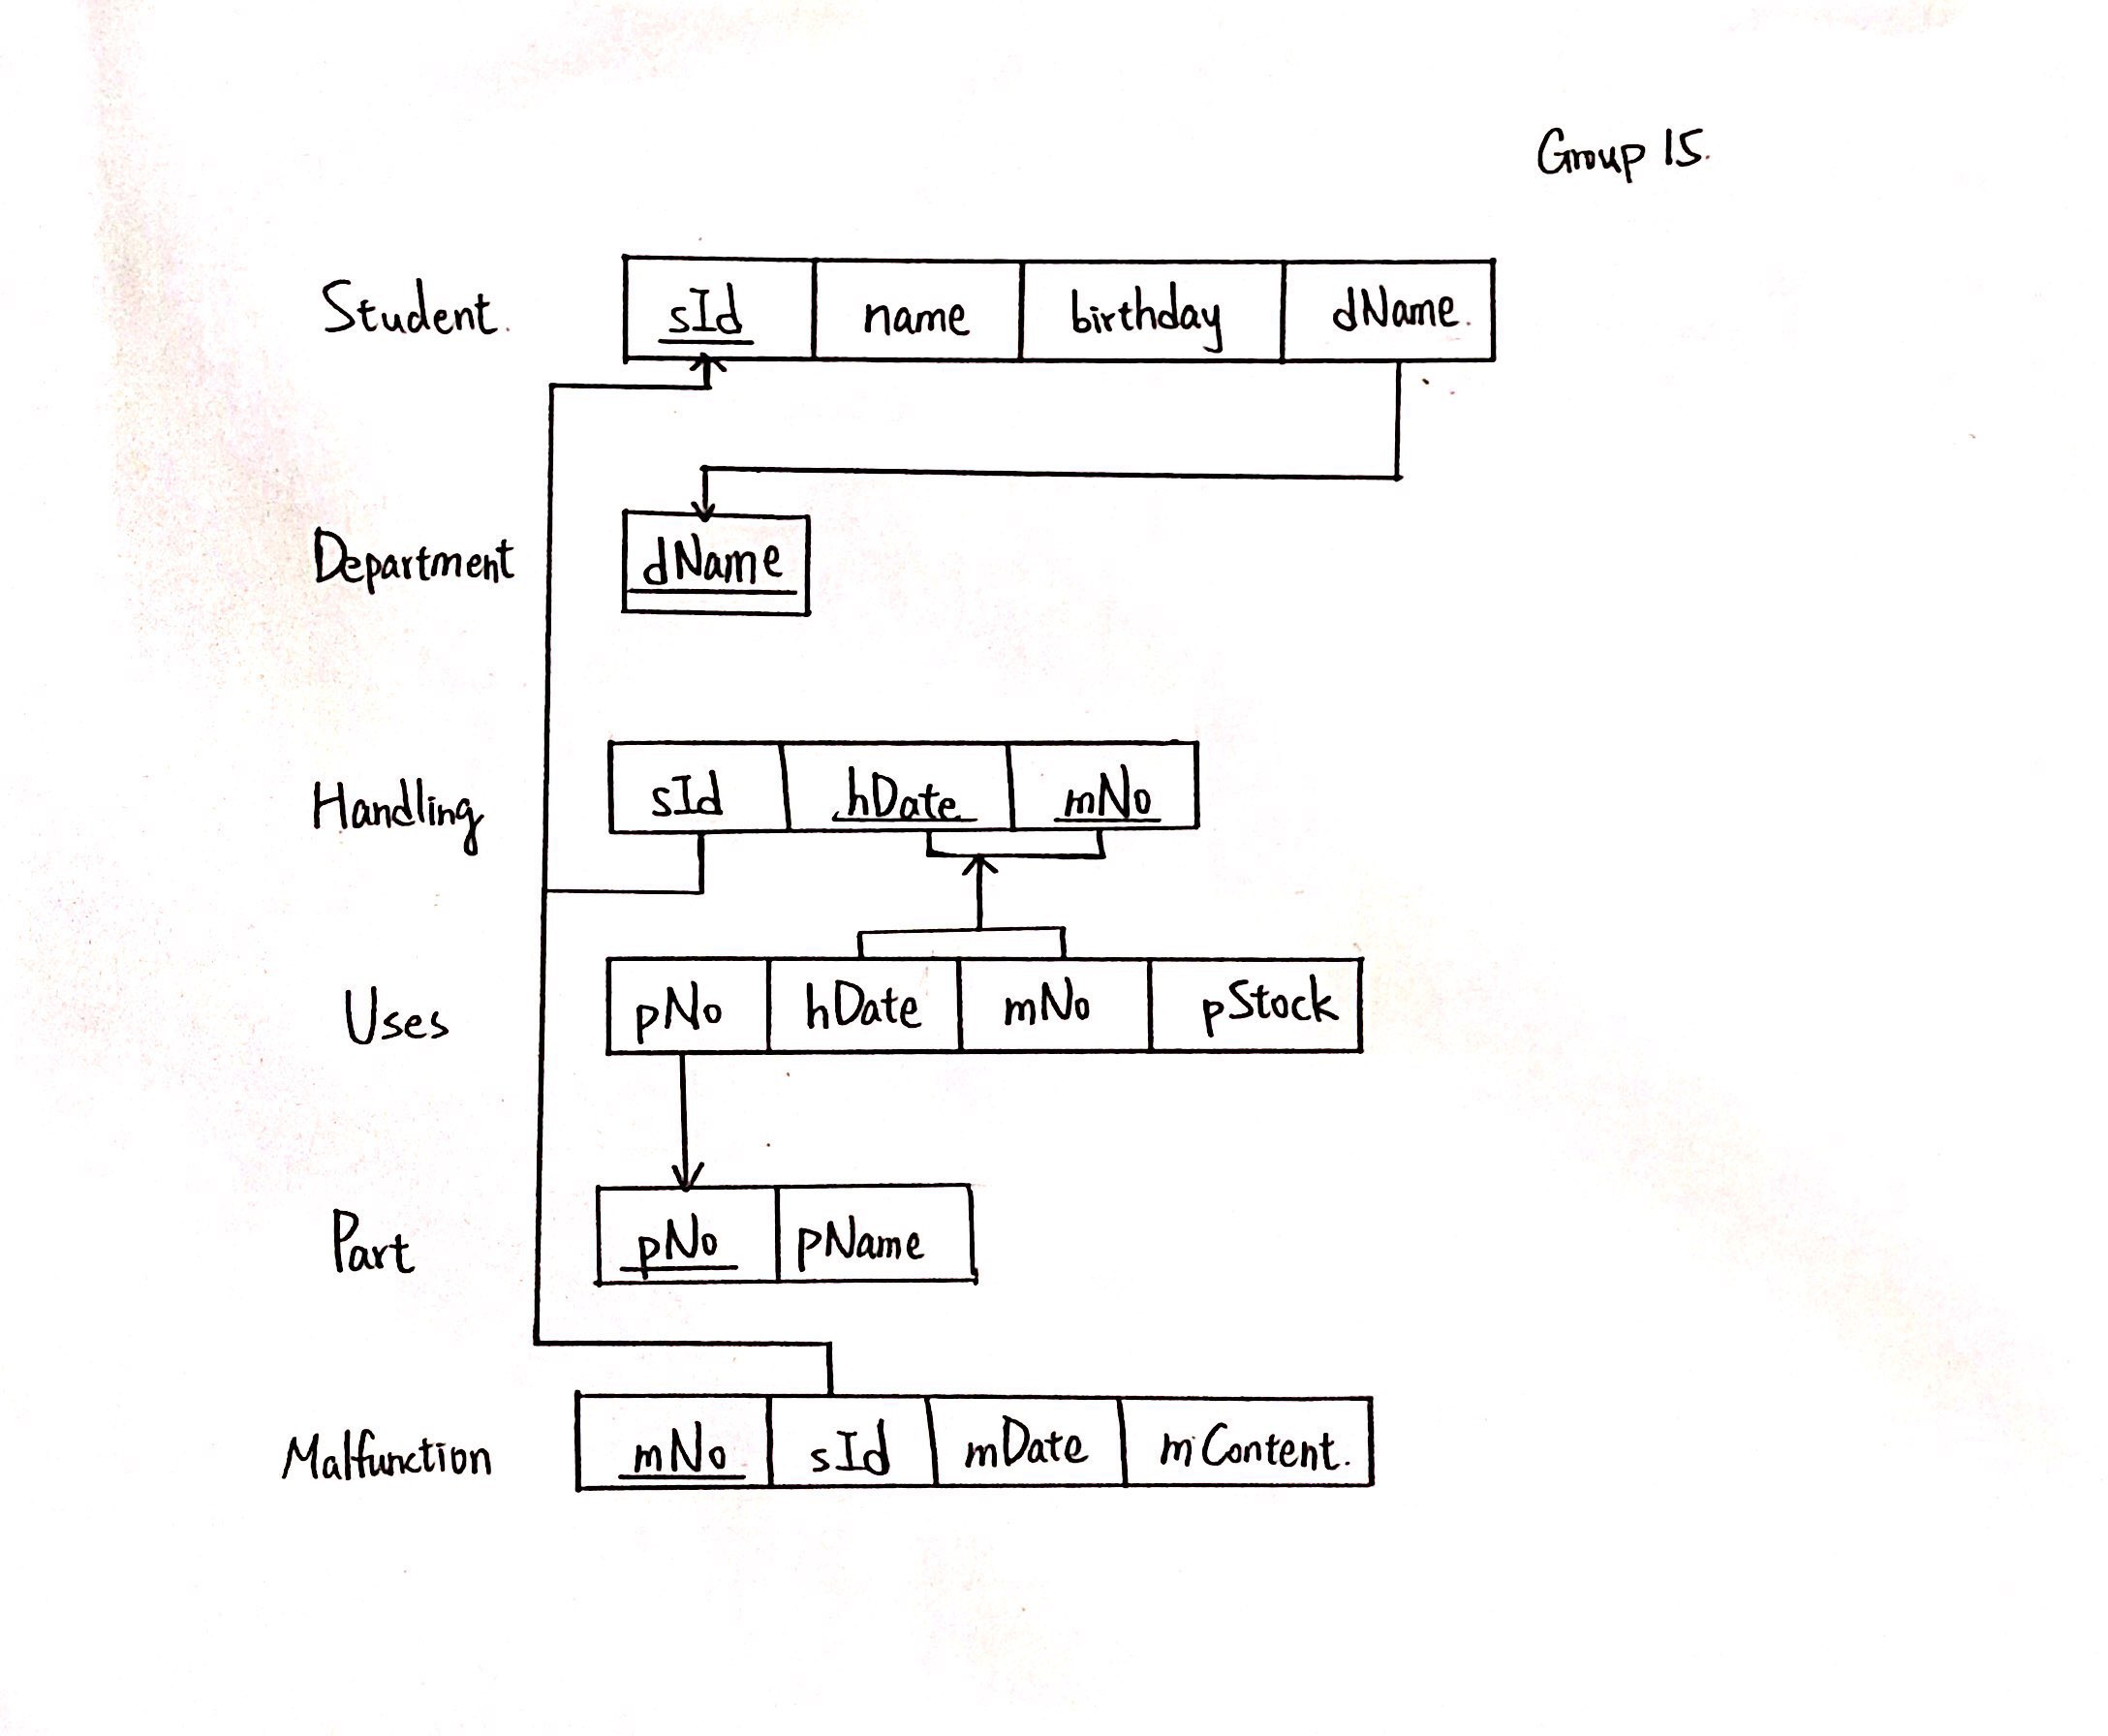 Group 15.
Student. sId name birthday dName.
Department dName
Handling sId hDate mNo
Uses pNo hDate mNo pStock
Part pNo pName
Malfunction mNo sId mDate mContent.